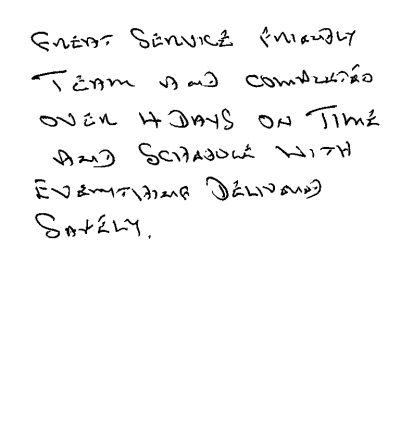 GREAT SERVICE FRIENDLY
TEAM AND COMPLETED
OVER 4 DAYS ON TIME
AND SCHEDULE WITH
EVERYTHING DELIVERED
SAFELY.